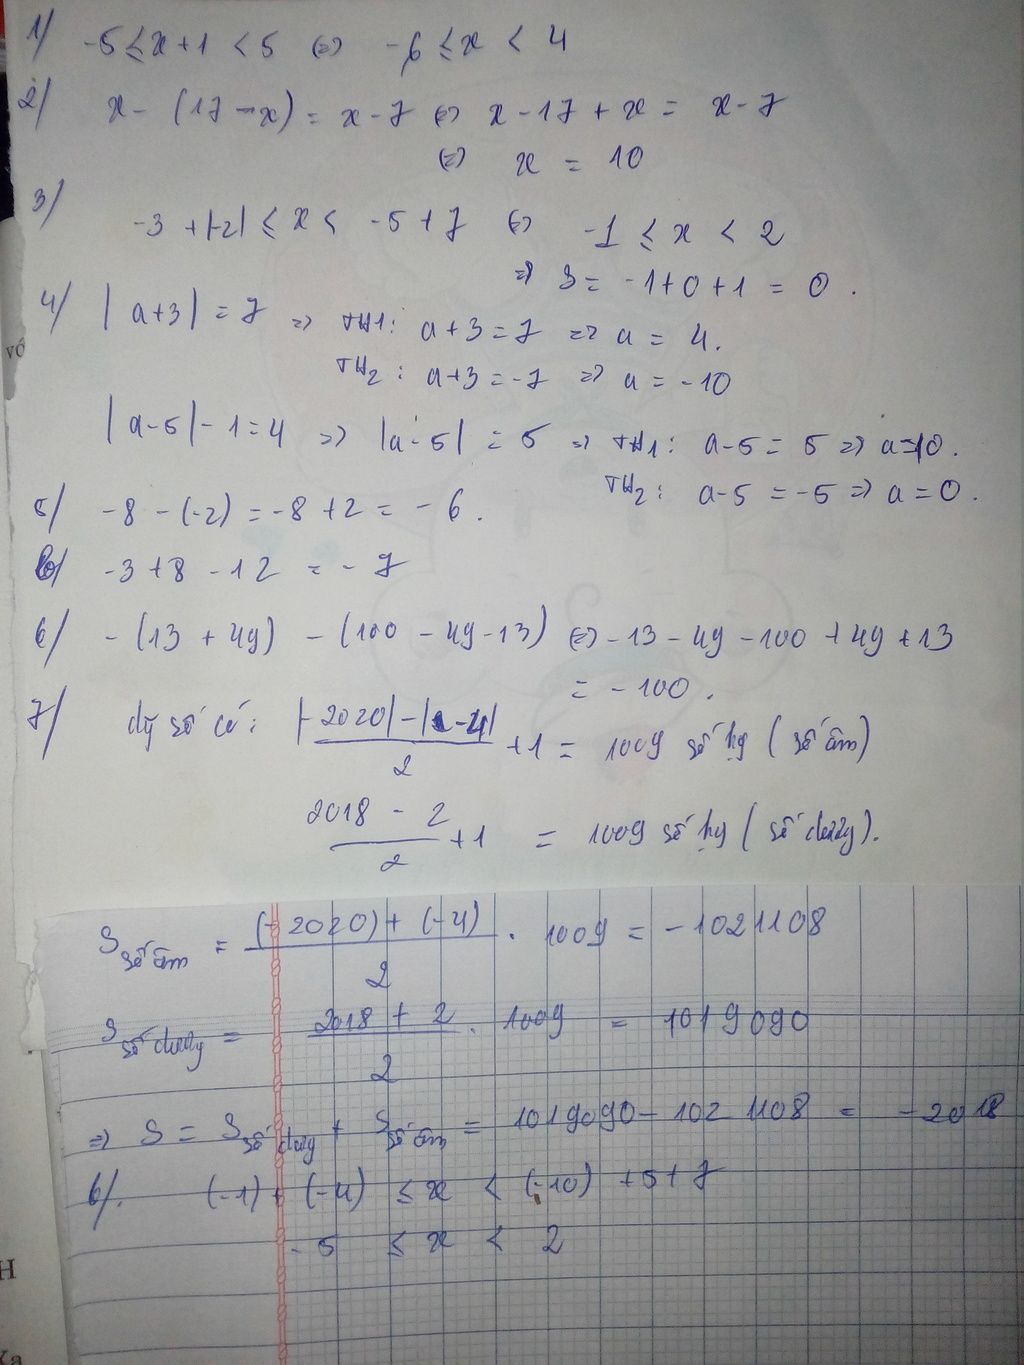 1/ -5 ≤ x + 1 < 5 (=) -6 ≤ x < 4
2/ x - (17 - x) = x - 7 (=) x - 17 + x = x - 7
(=) x = 10
3/ -3 + |-2| ≤ x < -5 + 7 (=) -1 ≤ x < 2
=> S = -1 + 0 + 1 = 0.
4/ |a+3| = 7 => TH1: a + 3 = 7 => a = 4.
TH2: a + 3 = -7 => a = -10
|a-5| - 1 = 4 => |a-5| = 5 => TH1: a - 5 = 5 => a = 10.
TH2: a - 5 = -5 => a = 0.
5/ -8 - (-2) = -8 + 2 = -6.
b/ -3 + 8 - 12 = -7
6/ -(13 + 4y) - (100 - 4y - 13) (=) -13 - 4y - 100 + 4y + 13
= -100.
7/ dãy số có: |-2020| - |-4| / 2 + 1 = 1009 số hg (số âm)
2018 - 2 / 2 + 1 = 1009 số hg (số dương).
S số âm = (-2020) + (-4) / 2 . 1009 = -1021108
S số dương = 2018 + 2 / 2 . 1009 = 1019090
=> S = S số dương + S số âm = 1019090 - 1021108 = -2018
6/. (-1) + (-4) ≤ x < (-10) + 5 + 7
-5 ≤ x < 2
vô
H